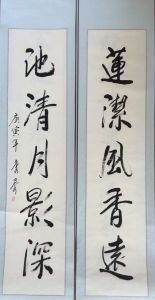 蓮潔風香遠
池清月影深
庚寅年